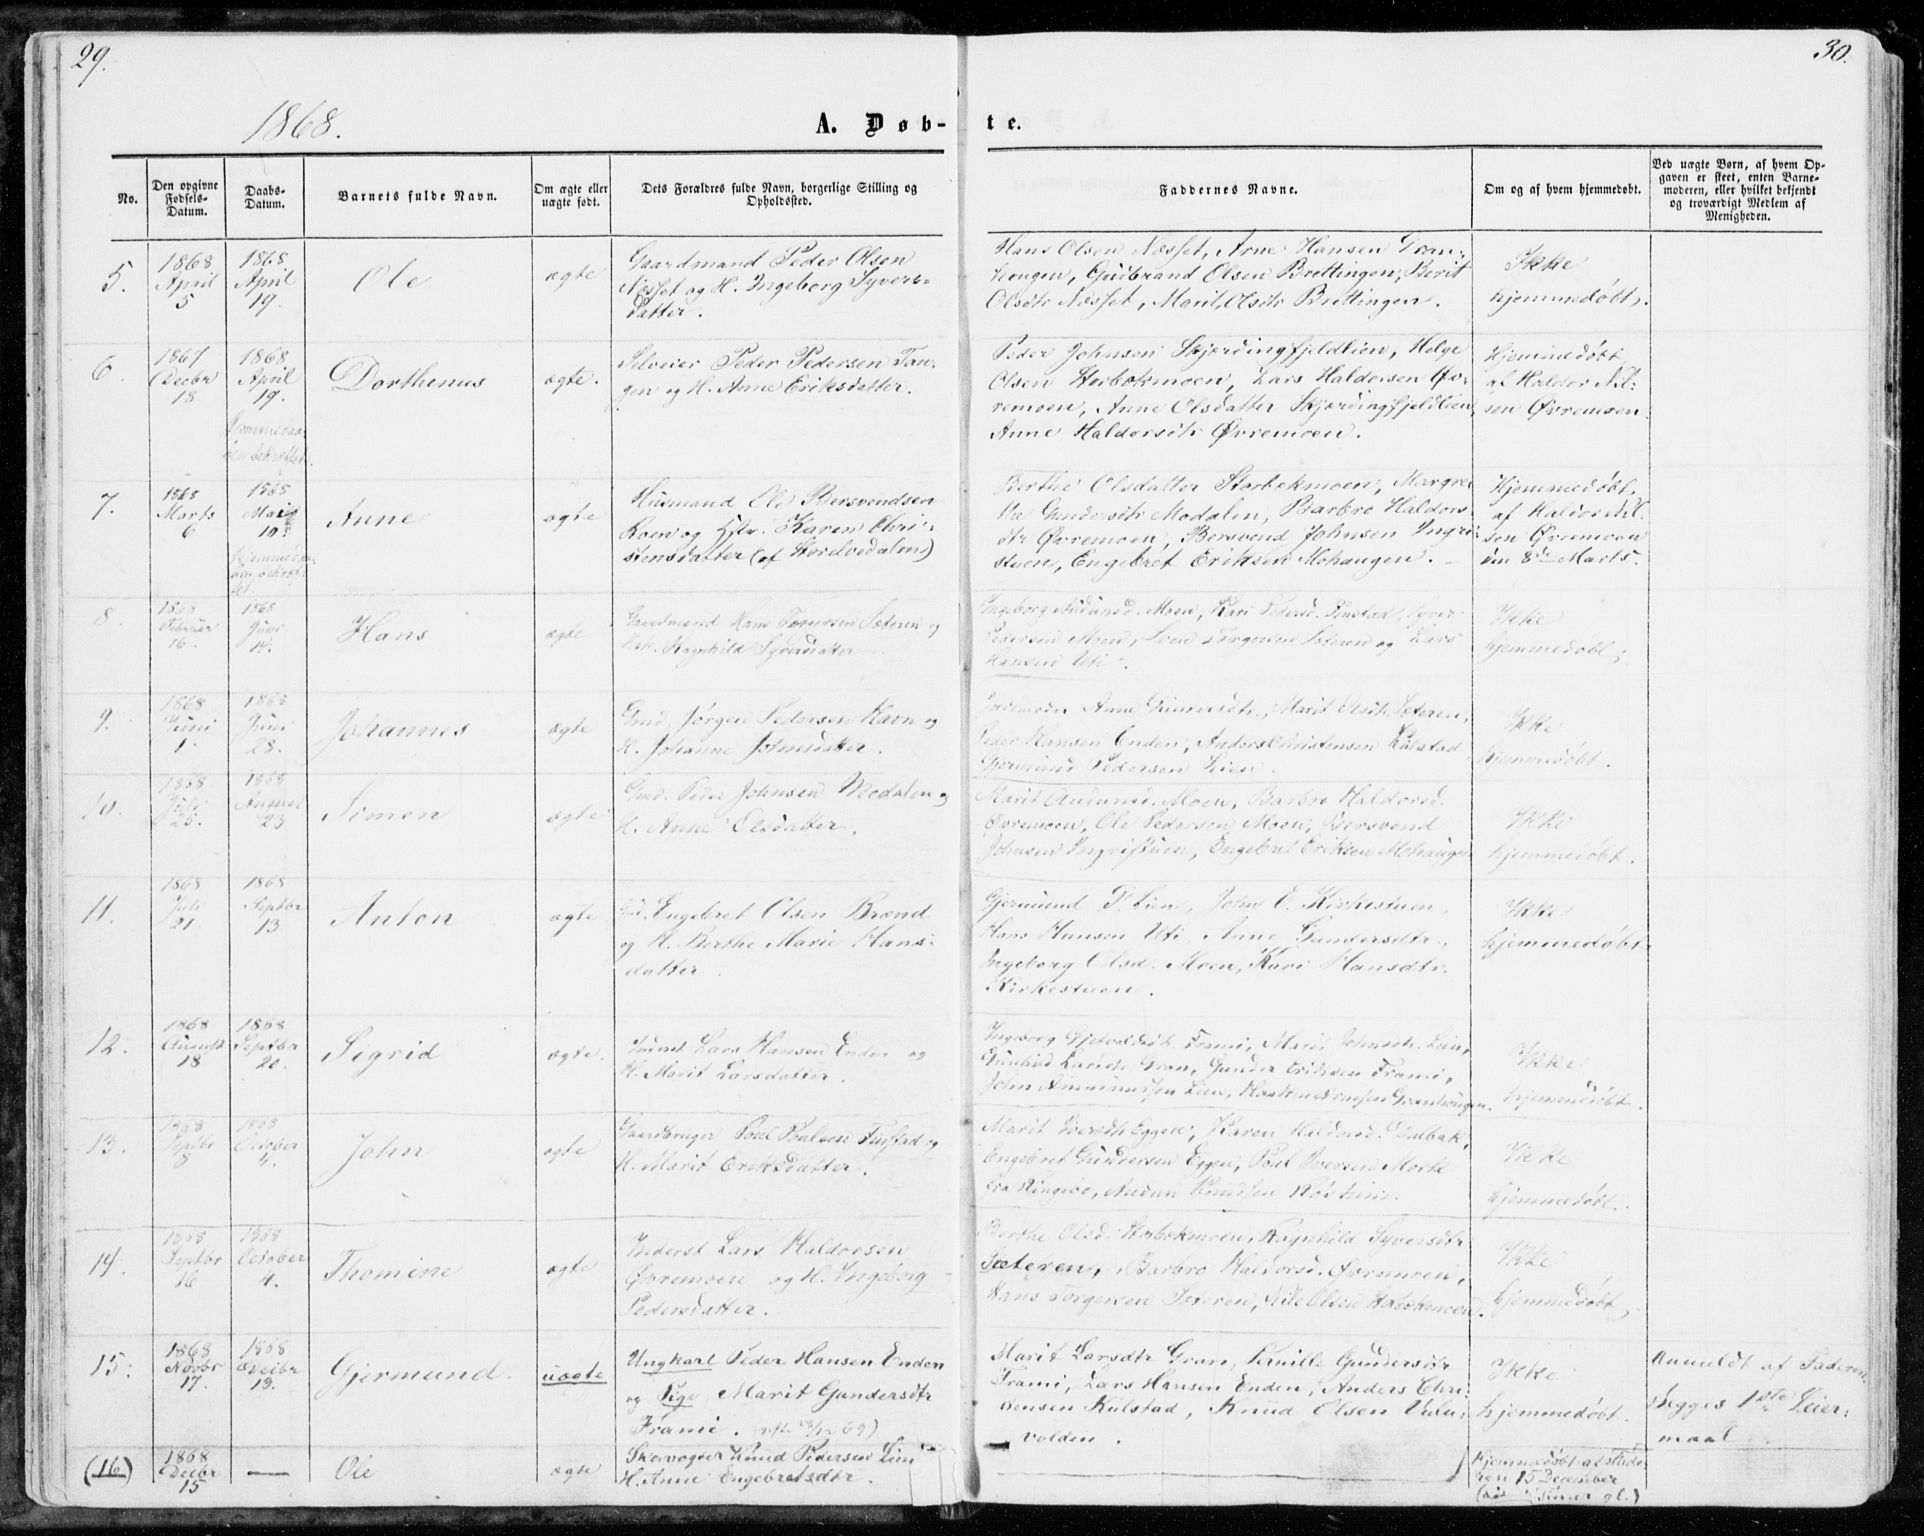 29.
30.
1868.
A. Døb-
te.
No.
Den opgivne
Fødsels-
Datum.
Daabs-
Datum.
Barnets fulde Navn.
Om ægte eller
uægte født.
Dets Forældres fulde Navn, borgerlige Stilling og
Opholdssted.
Faddernes Navne.
Om og af hvem hjemmedøbt.
Ved uægte Børn, af hvem Op-
gaven er skeet, enten Barne-
moderen, eller hvilket bekjendt
og troværdigt Medlem af
Menigheden.
5.
1868
April
5
1868
April
19.
Ole
ægte
Gaardmand Peder Olsen
Næsset og H. Ingeborg Syverts-
datter.
Hans Olsen Næsset, Arne Hansen Gran-
teengen, Gudbrand Olsen Brettingen, Berit
Olsdtr Næsset, Marit Olsdtr Brettingen.
Ikke
hjemmedøbt.
6.
1867
Decbr
18
1868
April
19.
Dorthenus
ægte.
Selveier Peder Pedersen Tan-
gen og H. Anne Eriksdatter.
Peder Johnsen Skjærdingfjeldlien, Helge
Olsen Storbekmoen, Lars Haldorsen Øv-
remoen, Anne Olsdatter Skjærdingfjeldlien
Anne Haldorsdtr Øvremoen.
Hjemmedøbt
af Haldor Nil-
sen Øvremoen.
7.
1868
Marts
6
1868
Mai
Anne
ægte
Husmand Ole Bersvendsen
Koen og Hstr. Karen Chri-
stensdatter (af Storelvedalen)
Berthe Olsdatter Storbekmoen, Margre-
the Gundersdtr Modalen, Barbro Haldors-
dtr Øvremoen, Bersvend Johnsen Ingri-
stuen, Engebret Eriksen Mohaugen.
Hjemmedøbt.
af Haldor Nil-
sen Øvremoen
den 8de Marts.
8.
1868
Februar
16.
1868
Juni
14.
Hans
ægte
Gaardmand Hans Torgersen Sæteren og
Hst. Ragnhild Syversdatter
Ingeborg Audunsd. Moen, Kari Pedersd.
Pedersen Moen, Torgersen Sæteren og Lars
Hansen Uti.
Ikke
hjemmedøbt.
9.
1868
Juni
1.
1868
Juni
28.
Johannes
ægte
Gmd. Jørgen Pedersen Kavn og
H. Johanne Johnsdatter.
Jordemoder Anne Gundersdtr., Marit Olsdtr. Sæteren,
Peder Hansen Enden, Anders Christensen Kulstad
Gjermund Pedersen Lien.
Ikke
hjemmedøbt.
10.
1868
Juli
25.
1868
August
23
Simen
ægte
Gmd. Peder Johnsen Modalen og
H. Anne Olsdatter.
Marit Audunsd. Moen, Barbro Haldorsd.
Øvremoen, Ole Pedersen Moen, Bersvend
Johnsen Ingristuen, Engebret Eriksen Mohaugen
Ikke
hjemmedøbt.
11.
1868
Juli
21
1868
Septbr
13
Anton
ægte
Engebret Olsen Brænd
og H. Berthe Marie Hans-
datter.
Gjermund P. Lien, John E. Kirkestuen,
Hans Hansen Uti, Anne Gundersdtr.,
Ingeborg Olsd. Moen, Kari Hansdtr.
Kirkestuen.
Ikke
hjemmedøbt
12.
1868
August
18
1868
Septbr
20.
Sigrid
ægte.
Inderst Lars Hansen Enden og
H. Marit Larsdatter.
Ingeborg Framí, Marit Johnsdtr. Lien,
Gunhild Larsdtr. Gran, Gunder Eriksen Framí,
John Lien,
Ikke
hjemmedøbt.
13.
1868
Septbr
8
1868
October
4.
John
ægte
Gaardbruger Poul Poulsen Finstad og
H. Marit Eriksdatter.
Marit Eggen, Karen Haldorsd. Dalbak,
Engebret Gundersen Eggen, Poul Iversen
fra Ringebo, Audun Knudsen
Ikke
hjemmedøbt.
14.
1868
Septbr
16
1868
October
4.
Thomine
ægte
Inderst Lars Haldorsen
Øvremoen og H. Ingeborg
Pedersdatter.
Berthe Olsd. Storbekmoen, Ragnhild Syversdtr
Sæteren, Barbro Haldorsd. Øvremoen,
Hans Torgersen Sæteren, Nils Olsen Storbekmoen.
Ikke
hjemmedøbt,
15.
1868
Novbr
17.
1868
Decbr
13.
Gjermund.
uægte
Ungkarl Peder Hansen Enden
og Pige Marit Gundersdtr
Framí.
Marit Larsdtr Gran, Pernille Gundersdtr
Framí, Lars Hansen Enden, Anders Chri-
stensen Kulstad, Knud Olsen Vulu-
volden.
Ikke
hjemmedøbt.
Anmeldt af Faderen,
Begges 1ste Leier-
maal
(16)
1868
Decbr
15
—
Ole
ægte
Skovvogter Knud Pedersen Lien
H. Anne Engebretsdtr.
Hjemmedøbt af
15 December
timer gl.)